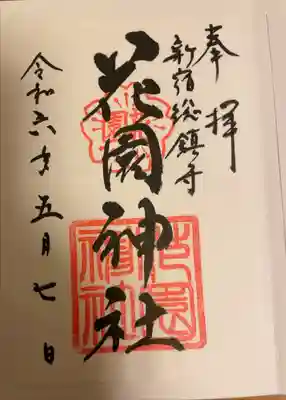 奉拝
新宿総鎮守
花園神社
令和六年五月七日